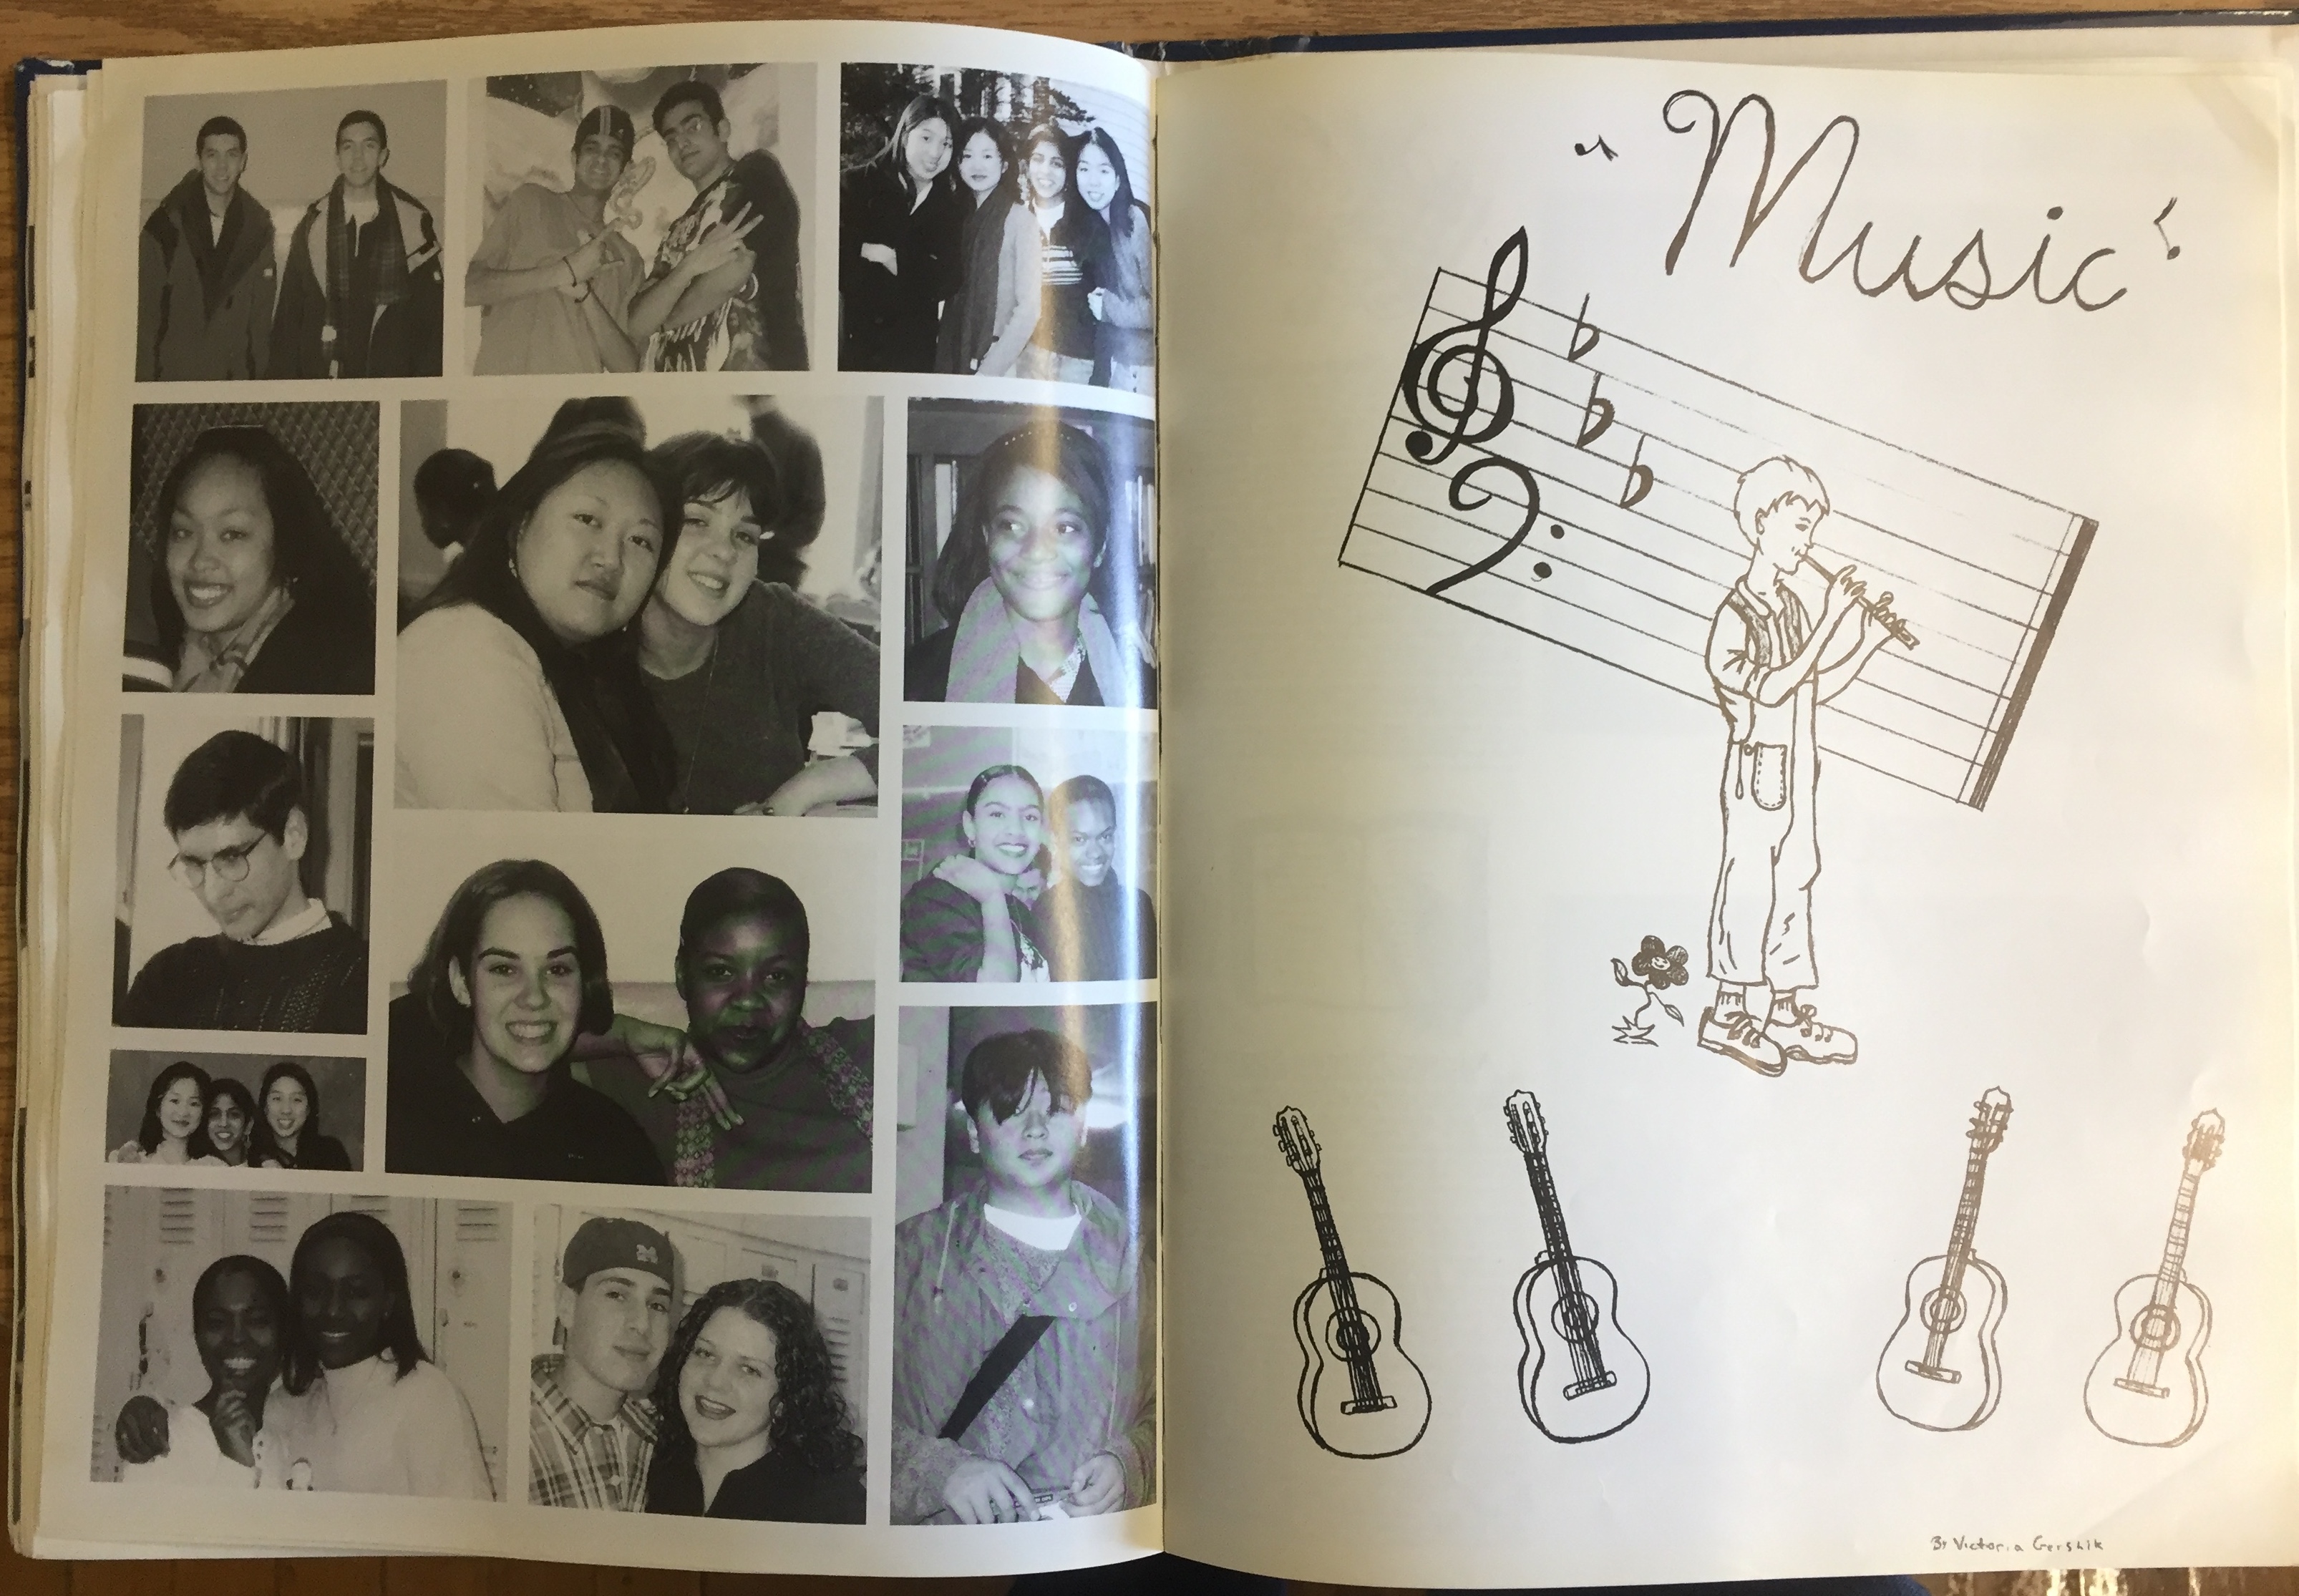 "Music"
By Victoria Gershik